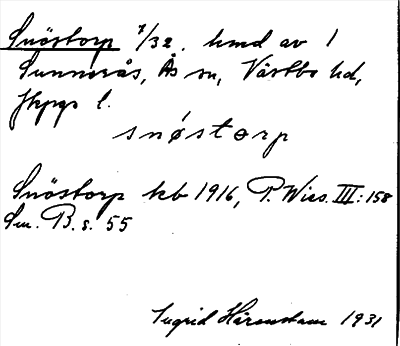 Snöstorp 7/32. hmd av 1
Sunnerås, Ås sn, Västbo hd,
Jkpgs l.
snøstorp
Snöstorp kb 1916, P. Wies. III: 158
Sm. B. s. 55
Ingrid Härenstam 1931